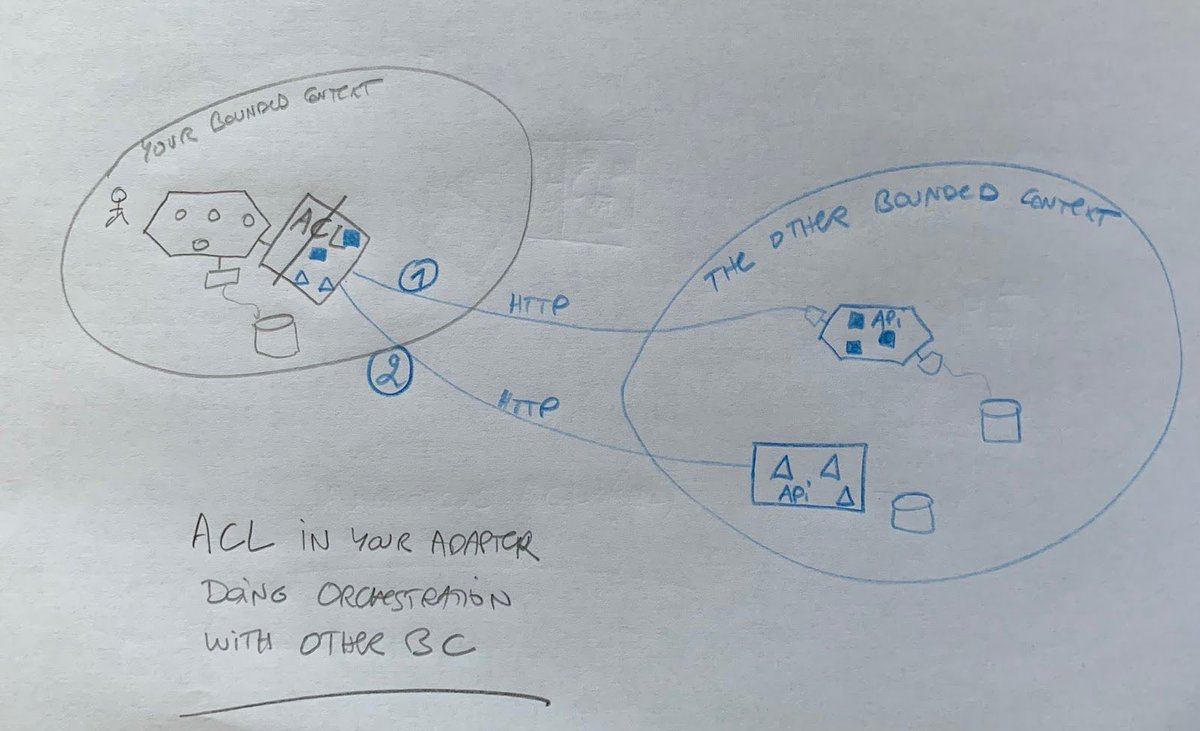 YOUR BOUNDED CONTEXT
ACL
1
HTTP
2
HTTP
THE OTHER BOUNDED CONTEXT
APi
APi
ACL iN YOUR ADAPTER
DOiNG ORCHESTRATiON
WiTH OTHER BC